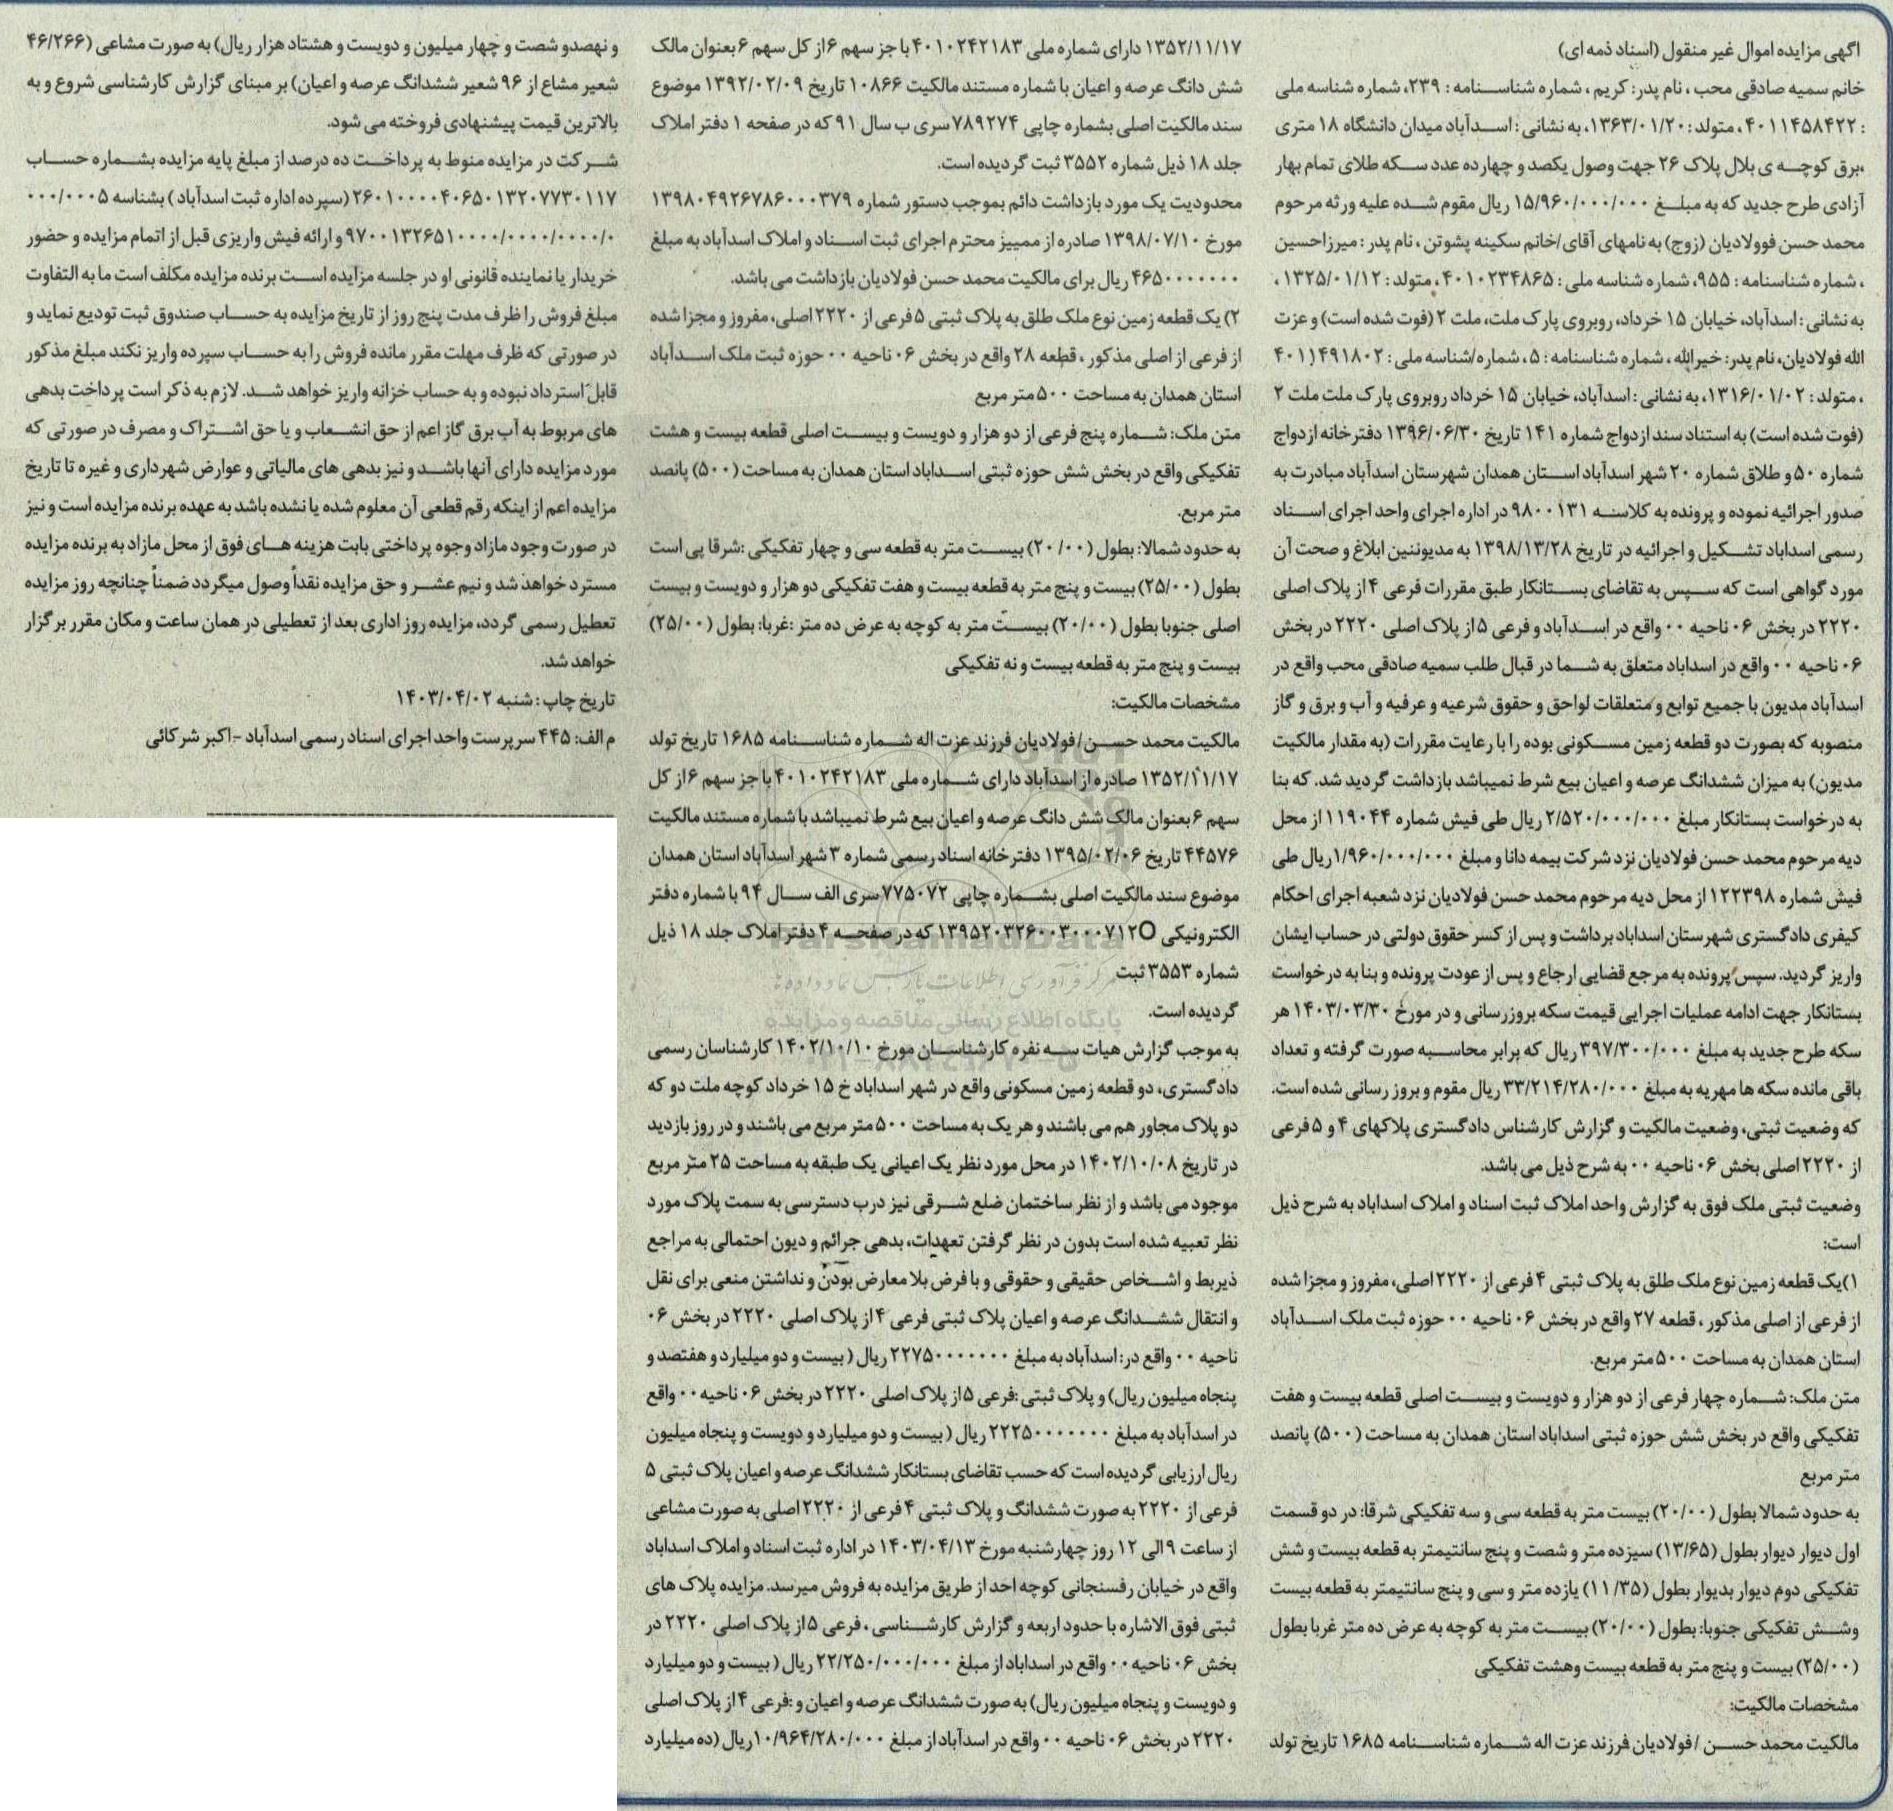 آگهی مزایده اموال غیر منقول (اسناد ذمه ای)
خانم سمیه صادقی محب ، نام پدر: کریم ، شماره شناسنامه : ۲۳۹، شماره شناسه ملی
: ۴۰۱۱۴۵۸۴۲۲ ، متولد : ۱۳۶۳/۰۱/۲۰، به نشانی : اسدآباد میدان دانشگاه ۱۸ متری
،برق کوچه ی بلال پلاک ۲۶ جهت وصول یکصد و چهارده عدد سکه طلای تمام بهار
آزادی طرح جدید که به مبلغ ۱۵/۹۶۰/۰۰۰/۰۰۰ ریال مقوم شده علیه ورثه مرحوم
محمد حسن فوولادیان (زوج) به نامهای آقای/خانم سکینه پشوتن ، نام پدر : میرزاحسین
، شماره شناسنامه : ۹۵۵، شماره شناسه ملی : ۴۰۱۰۲۳۴۸۶۵ ، متولد : ۱۳۲۵/۰۱/۱۲ ،
به نشانی : اسدآباد، خیابان ۱۵ خرداد، روبروی پارک ملت، ملت ۲ (فوت شده است) و عزت
الله فولادیان، نام پدر: خیرالله ، شماره شناسنامه : ۵، شماره/شناسه ملی : ۴۰۱۱۴۹۱۸۰۲
، متولد : ۱۳۱۶/۰۱/۰۲، به نشانی : اسدآباد، خیابان ۱۵ خرداد روبروی پارک ملت ملت ۲
(فوت شده است) به استناد سند ازدواج شماره ۱۴۱ تاریخ ۱۳۹۶/۰۶/۳۰ دفترخانه ازدواج
شماره ۵۰ و طلاق شماره ۲۰ شهر اسدآباد استان همدان شهرستان اسدآباد مبادرت به
صدور اجرائیه نموده و پرونده به کلاسه ۹۸۰۰۱۳۱ در اداره اجرای واحد اجرای اسناد
رسمی اسداباد تشکیل و اجرائیه در تاریخ ۱۳۹۸/۱۳/۲۸ به مدیونین ابلاغ و صحت آن
مورد گواهی است که سپس به تقاضای بستانکار طبق مقررات فرعی ۴ از پلاک اصلی
۲۲۲۰ در بخش ۰۶ ناحیه ۰۰ واقع در اسدآباد و فرعی ۵ از پلاک اصلی ۲۲۲۰ در بخش
۰۶ ناحیه ۰۰ واقع در اسداباد متعلق به شما در قبال طلب سمیه صادقی محب واقع در
اسدآباد مدیون با جمیع توابع و متعلقات لواحق و حقوق شرعیه و عرفیه و آب و برق و گاز
منصوبه که بصورت دو قطعه زمین مسکونی بوده را با رعایت مقررات (به مقدار مالکیت
مدیون) به میزان ششدانگ عرصه و اعیان بیع شرط نمیباشد بازداشت گردید شد. که بنا
به درخواست بستانکار مبلغ ۲/۵۲۰/۰۰۰/۰۰۰ ریال طی فیش شماره ۱۱۹۰۴۴ از محل
دیه مرحوم محمد حسن فولادیان نزد شرکت بیمه دانا و مبلغ ۱/۹۶۰/۰۰۰/۰۰۰ریال طی
فیش شماره ۱۲۲۳۹۸ از محل دیه مرحوم محمد حسن فولادیان نزد شعبه اجرای احکام
کیفری دادگستری شهرستان اسداباد برداشت و پس از کسر حقوق دولتی در حساب ایشان
واریز گردید. سپس پرونده به مرجع قضایی ارجاع و پس از عودت پرونده و بنا به درخواست
بستانکار جهت ادامه عملیات اجرایی قیمت سکه بروزرسانی و در مورخ ۱۴۰۳/۰۳/۳۰ هر
سکه طرح جدید به مبلغ ۳۹۷/۳۰۰/۰۰۰ ریال که برابر محاسبه صورت گرفته و تعداد
باقی مانده سکه ها مهریه به مبلغ ۳۳/۲۱۴/۲۸۰/۰۰۰ ریال مقوم و بروز رسانی شده است.
که وضعیت ثبتی، وضعیت مالکیت و گزارش کارشناس دادگستری پلاکهای ۴ و ۵ فرعی
از ۲۲۲۰ اصلی بخش ۰۶ ناحیه ۰۰ به شرح ذیل می باشد.
وضعیت ثبتی ملک فوق به گزارش واحد املاک ثبت اسناد و املاک اسداباد به شرح ذیل
است:
۱)یک قطعه زمین نوع ملک طلق به پلاک ثبتی ۴ فرعی از ۲۲۲۰ اصلی، مفروز و مجزا شده
از فرعی از اصلی مذکور ، قطعه ۲۷ واقع در بخش ۰۶ ناحیه ۰۰ حوزه ثبت ملک اسدآباد
استان همدان به مساحت ۵۰۰ متر مربع.
متن ملک: شماره چهار فرعی از دو هزار و دویست و بیست اصلی قطعه بیست و هفت
تفکیکی واقع در بخش شش حوزه ثبتی اسداباد استان همدان به مساحت (۵۰۰) پانصد
متر مربع
به حدود شمالا بطول (۲۰/۰۰) بیست متر به قطعه سی و سه تفکیکی شرقا: در دو قسمت
اول دیوار دیوار بطول (۱۳/۶۵) سیزده متر و شصت و پنج سانتیمتر به قطعه بیست و شش
تفکیکی دوم دیوار بدیوار بطول (۱۱/۳۵) یازده متر و سی و پنج سانتیمتر به قطعه بیست
وشش تفکیکی جنوبا: بطول (۲۰/۰۰) بیست متر به کوچه به عرض ده متر غربا بطول
(۲۵/۰۰) بیست و پنج متر به قطعه بیست وهشت تفکیکی
مشخصات مالکیت:
مالکیت محمد حسن / فولادیان فرزند عزت اله شماره شناسنامه ۱۶۸۵ تاریخ تولد
۱۳۵۲/۱۱/۱۷ دارای شماره ملی ۴۰۱۰۲۴۲۱۸۳ با جز سهم ۶ از کل سهم ۶ بعنوان مالک
شش دانگ عرصه و اعیان با شماره مستند مالکیت ۱۰۸۶۶ تاریخ ۱۳۹۲/۰۲/۰۹ موضوع
سند مالکیت اصلی بشماره چاپی ۷۸۹۲۷۴ سری ب سال ۹۱ که در صفحه ۱ دفتر املاک
جلد ۱۸ ذیل شماره ۳۵۵۲ ثبت گردیده است.
محدودیت یک مورد بازداشت دائم بموجب دستور شماره ۱۳۹۸۰۴۹۲۶۷۸۶۰۰۰۳۷۹
مورخ ۱۳۹۸/۰۷/۱۰ صادره از ممییز محترم اجرای ثبت اسناد و املاک اسدآباد به مبلغ
۴۶۵۰۰۰۰۰۰۰ ریال برای مالکیت محمد حسن فولادیان بازداشت می باشد.
۲) یک قطعه زمین نوع ملک طلق به پلاک ثبتی ۵ فرعی از ۲۲۲۰ اصلی، مفروز و مجزا شده
از فرعی از اصلی مذکور ، قطعه ۲۸ واقع در بخش ۰۶ ناحیه ۰۰ حوزه ثبت ملک اسدآباد
استان همدان به مساحت ۵۰۰ متر مربع
متن ملک: شماره پنج فرعی از دو هزار و دویست و بیست اصلی قطعه بیست و هشت
تفکیکی واقع در بخش شش حوزه ثبتی اسداباد استان همدان به مساحت (۵۰۰) پانصد
متر مربع.
به حدود شمالا: بطول (۲۰/۰۰) بیست متر به قطعه سی و چهار تفکیکی :شرقا پی است
بطول (۲۵/۰۰) بیست و پنج متر به قطعه بیست و هفت تفکیکی دو هزار و دویست و بیست
اصلی جنوبا بطول (۲۰/۰۰) بیست متر به کوچه به عرض ده متر :غربا: بطول (۲۵/۰۰)
بیست و پنج متر به قطعه بیست و نه تفکیکی
مشخصات مالکیت:
مالکیت محمد حسن/فولادیان فرزند عزت اله شماره شناسنامه ۱۶۸۵ تاریخ تولد
۱۳۵۲/۱۱/۱۷ صادره از اسدآباد دارای شماره ملی ۴۰۱۰۲۴۲۱۸۳ با جز سهم ۶ از کل
سهم ۶ بعنوان مالک شش دانگ عرصه و اعیان بیع شرط نمیباشد با شماره مستند مالکیت
۴۴۵۷۶ تاریخ ۱۳۹۵/۰۲/۰۶ دفترخانه اسناد رسمی شماره ۳ شهر اسدآباد استان همدان
موضوع سند مالکیت اصلی بشماره چاپی ۷۷۵۰۷۲ سری الف سال ۹۴ با شماره دفتر
الکترونیکی ۱۳۹۵۲۰۳۲۶۰۰۳۰۰۰۷۱۲O که در صفحه ۴ دفتر املاک جلد ۱۸ ذیل
شماره ۳۵۵۳ ثبت
گردیده است.
به موجب گزارش هیات سه نفره کارشناسان مورخ ۱۴۰۲/۱۰/۱۰ کارشناسان رسمی
دادگستری، دو قطعه زمین مسکونی واقع در شهر اسداباد خ ۱۵ خرداد کوچه ملت دو که
دو پلاک مجاور هم می باشند و هر یک به مساحت ۵۰۰ متر مربع می باشند و در روز بازدید
در تاریخ ۱۴۰۲/۱۰/۰۸ در محل مورد نظر یک اعیانی یک طبقه به مساحت ۲۵ متر مربع
موجود می باشد و از نظر ساختمان ضلع شرقی نیز درب دسترسی به سمت پلاک مورد
نظر تعبیه شده است بدون در نظر گرفتن تعهدات، بدهی جرائم و دیون احتمالی به مراجع
ذیربط و اشخاص حقیقی و حقوقی و با فرض بلا معارض بودن و نداشتن منعی برای نقل
و انتقال ششدانگ عرصه و اعیان پلاک ثبتی فرعی ۴ از پلاک اصلی ۲۲۲۰ در بخش ۰۶
ناحیه ۰۰ واقع در: اسدآباد به مبلغ ۲۲۷۵۰۰۰۰۰۰۰ ریال (بیست و دو میلیارد و هفتصد و
پنجاه میلیون ریال) و پلاک ثبتی :فرعی ۵ از پلاک اصلی ۲۲۲۰ در بخش ۰۶ ناحیه۰۰ واقع
در اسدآباد به مبلغ ۲۲۲۵۰۰۰۰۰۰۰ ریال (بیست و دو میلیارد و دویست و پنجاه میلیون
ریال ارزیابی گردیده است که حسب تقاضای بستانکار ششدانگ عرصه و اعیان پلاک ثبتی ۵
فرعی از ۲۲۲۰ به صورت ششدانگ و پلاک ثبتی ۴ فرعی از ۲۲۲۰ اصلی به صورت مشاعی
از ساعت ۹ الی ۱۲ روز چهارشنبه مورخ ۱۴۰۳/۰۴/۱۳ در اداره ثبت اسناد و املاک اسداباد
واقع در خیابان رفسنجانی کوچه احد از طریق مزایده به فروش میرسد. مزایده پلاک های
ثبتی فوق الاشاره با حدود اربعه و گزارش کارشناسی ، فرعی ۵ از پلاک اصلی ۲۲۲۰ در
بخش ۰۶ ناحیه۰۰ واقع در اسداباد از مبلغ ۲۲/۲۵۰/۰۰۰/۰۰۰ ریال (بیست و دو میلیارد
و دویست و پنجاه میلیون ریال) به صورت ششدانگ عرصه و اعیان و :فرعی ۴ از پلاک اصلی
۲۲۲۰ در بخش ۰۶ ناحیه ۰۰ واقع در اسدآباد از مبلغ ۱۰/۹۶۴/۲۸۰/۰۰۰ریال (ده میلیارد
و نهصدو شصت و چهار میلیون و دویست و هشتاد هزار ریال) به صورت مشاعی (۴۶/۲۶۶
شعیر مشاع از ۹۶ شعیر ششدانگ عرصه و اعیان) بر مبنای گزارش کارشناسی شروع و به
بالاترین قیمت پیشنهادی فروخته می شود.
شرکت در مزایده منوط به پرداخت ده درصد از مبلغ پایه مزایده بشماره حساب
۲۶۰۱۰۰۰۰۴۰۶۵۰۱۳۲۰۷۷۳۰۱۱۷ (سپرده اداره ثبت اسدآباد ) بشناسه ۰۰۰/۰۰۰۵
۹۷۰۰۱۳۲۶۵۱۰۰۰۰/۰۰۰۰/۰۰۰۰/۰ و ارائه فیش واریزی قبل از اتمام مزایده و حضور
خریدار یا نماینده قانونی او در جلسه مزایده است برنده مزایده مکلف است ما به التفاوت
مبلغ فروش را ظرف مدت پنج روز از تاریخ مزایده به حساب صندوق ثبت تودیع نماید و
در صورتی که ظرف مهلت مقرر مانده فروش را به حساب سپرده واریز نکند مبلغ مذکور
قابل استرداد نبوده و به حساب خزانه واریز خواهد شد. لازم به ذکر است پرداخت بدهی
های مربوط به آب برق گاز اعم از حق انشعاب و یا حق اشتراک و مصرف در صورتی که
مورد مزایده دارای آنها باشد و نیز بدهی های مالیاتی و عوارض شهرداری و غیره تا تاریخ
مزایده اعم از اینکه رقم قطعی آن معلوم شده یا نشده باشد به عهده برنده مزایده است و نیز
در صورت وجود مازاد وجوه پرداختی بابت هزینه های فوق از محل مازاد به برنده مزایده
مسترد خواهد شد و نیم عشر و حق مزایده نقداً وصول میگردد ضمناً چنانچه روز مزایده
تعطیل رسمی گردد، مزایده روز اداری بعد از تعطیلی در همان ساعت و مکان مقرر برگزار
خواهد شد.
تاریخ چاپ : شنبه ۱۴۰۳/۰۴/۰۲
م الف: ۴۴۵ سرپرست واحد اجرای اسناد رسمی اسدآباد -اکبر شرکائی
ParsNamadData
مرکز فرآوری اطلاعات پارس نماد داده ها
پایگاه اطلاع رسانی مناقصه و مزایده